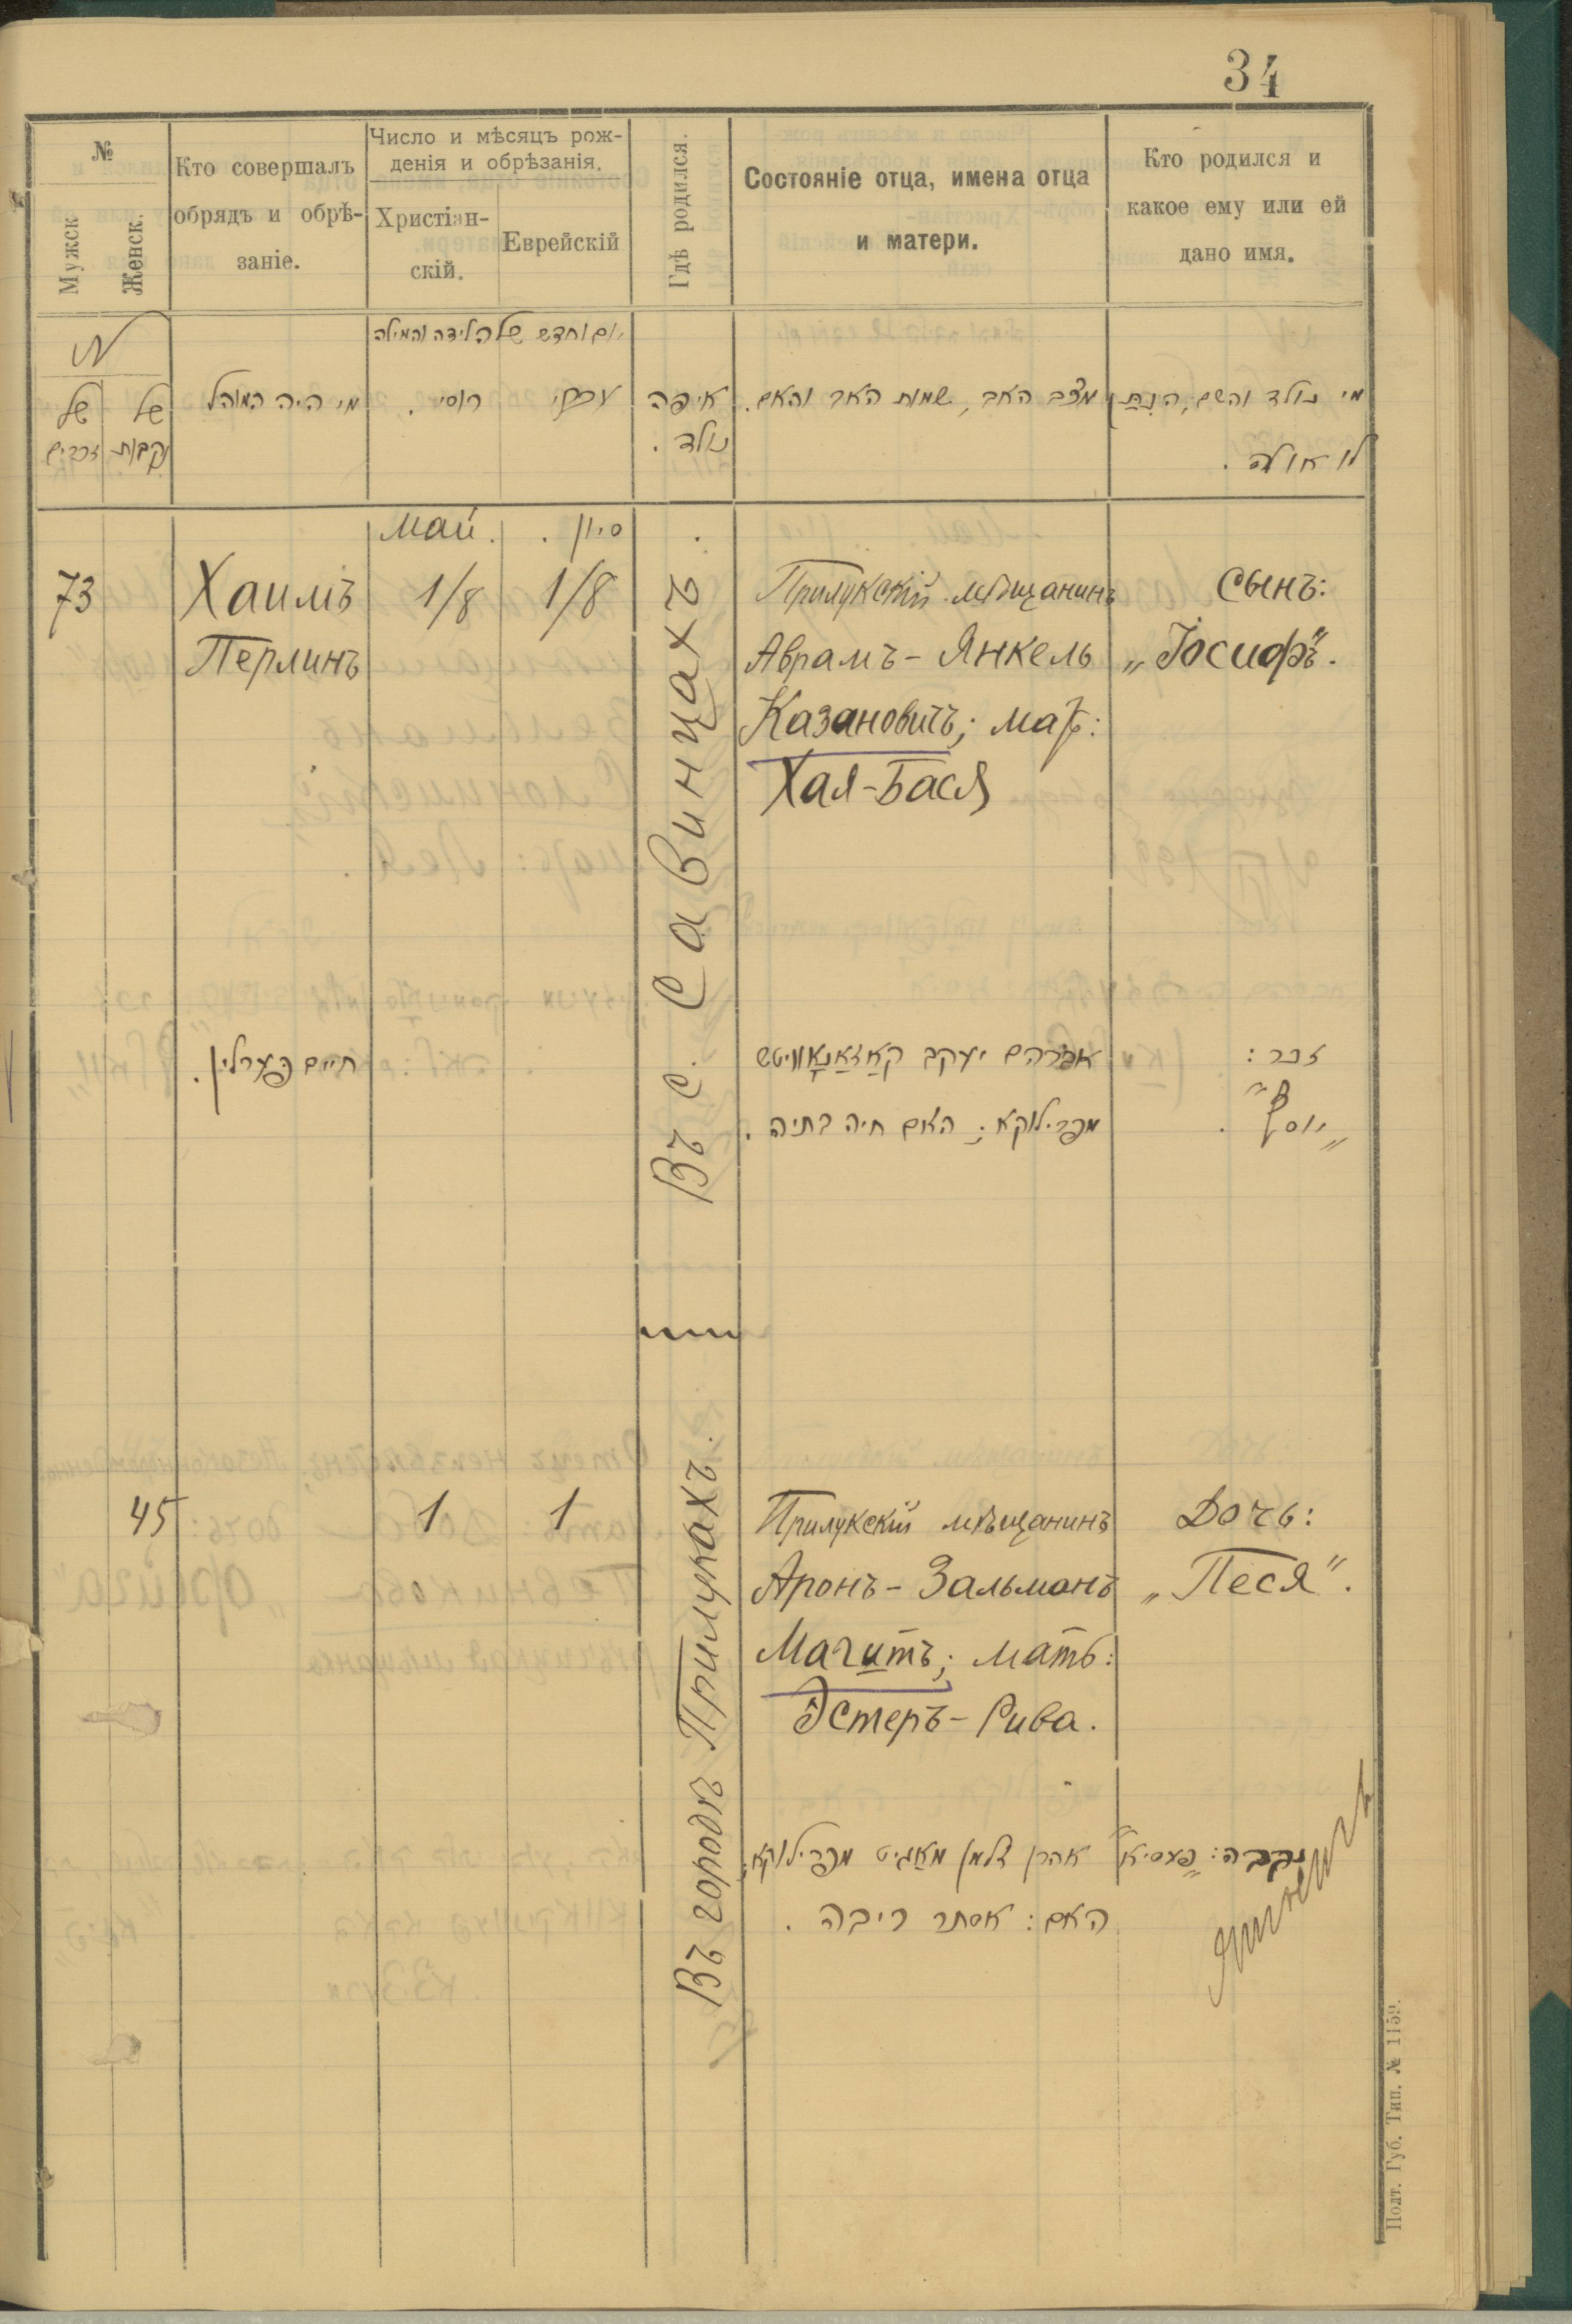 34
№
Мужск
Женск.
Кто совершалъ
обрядъ и обрѣ-
заніе.
Число и мѣсяцъ рож-
денія и обрѣзанія.
Христіан-
скій.
Еврейскій
Гдѣ родился.
Состояніе отца, имена отца
и матери.
Кто родился и
какое ему или ей
дано имя.
N
של
זכרים
של
נקבות
מי היה המוהל
יום וחדש של הלידה והמילה
רוסי.
עברי
איפה
נולד.
מצב האב, שמות האב והאם.
מי נולד והשם, הנתן
לו או לה.
Май.
סיון.
73
Хаимъ
Перлинъ
1/8
1/8
Въ с. Савинцахъ.
Прилукскій мѣщанинъ
Аврамъ-Янкель
Казановичъ; мать:
Хая-Бася
Сынъ:
„Іосифъ“.
חיים פערלין.
אברהם יעקב קאַזאַנאָוויטש
מפרילוקא; האם חיה בתיה.
זכר:
„יוסף“.
45
1
1
Въ городѣ Прилукахъ.
Прилукскій мѣщанинъ
Аронъ-Зальманъ
Магитъ; мать:
Эстеръ-Рива.
Дочь:
„Песя“.
אהרן זלמן מאַגיט מפרילוקא;
האם: אסתר ריבה.
נקבה: „פעסיא“
Полт. Губ. Тип. № 1159.